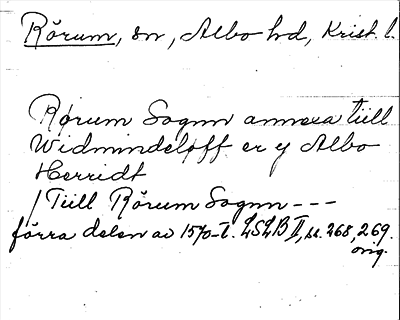 Rörum, sn, Albo hd, Krist. l.
Rørum Sognn annexa tiill
Widmindeløff er y Albo
Herridt
/ Tiill Rörum Sognn ---
förra delen av 1570-t. LSLB II, s. 268, 269.
orig.